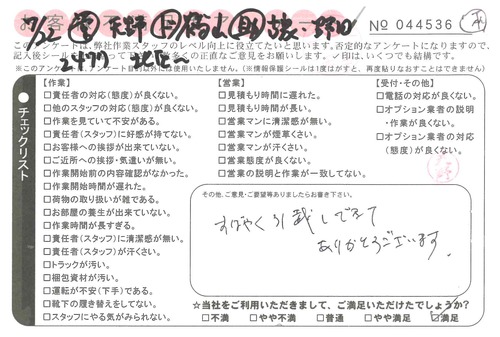 No 044536
このアンケートは、弊社作業スタッフのレベル向上に役立てたいと思います。否定的なアンケートになりますので、
記入後シール
の正直なご意見をお願いします。✓印は、いくつでも結構です。
※このアンケート
使用いたしません。(※情報保護シールは1度はがすと、再度貼りなおすことはできません)
チェックリスト
【作業】
□責任者の対応(態度)が良くない。
□他のスタッフの対応(態度)が良くない。
□作業を見ていて不安がある。
□責任者(スタッフ)に好感が持てない。
□お客様への挨拶が出来ていない。
□ご近所への挨拶・気遣いが無い。
□作業開始前の内容確認がなかった。
□作業開始時間が遅れた。
□荷物の取り扱いが雑である。
□お部屋の養生が出来ていない。
□作業時間が長すぎる。
□責任者(スタッフ)に清潔感が無い。
□責任者(スタッフ)が汗くさい。
□トラックが汚い。
□梱包資材が汚い。
□運転が不安(下手)である。
□靴下の履き替えをしてない。
□スタッフにやる気がみられない。
【営業】
□見積もり時間に遅れた。
□見積もり時間が長い。
□営業マンに清潔感が無い。
□営業マンが煙草くさい。
□営業マンが汗くさい。
□営業態度が良くない。
□営業の説明と作業が一致してない。
【受付・その他】
□電話の対応が良くない。
□オプション業者の説明
・作業が良くない。
□オプション業者の対応
(態度)が良くない。
その他、ご意見・ご要望等ありましたらお書き下さい。
すばやく引越しできて
ありがとうございます。
☆当社をご利用いただきまして、ご満足いただけたでしょうか?
□不満 □やや不満 □普通 □やや満足 ☑満足